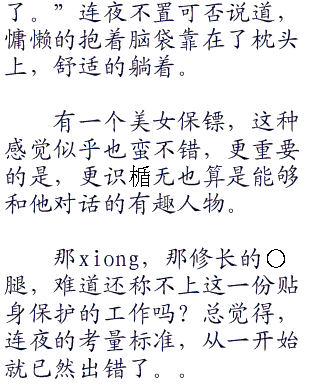 了。”连夜不置可否说道，
慵懒的抱着脑袋靠在了枕头
上，舒适的躺着。
有一个美女保镖，这种
感觉似乎也蛮不错，更重要
的是，更识楯无也算是能够
和他对话的有趣人物。
那xiong，那修长的〇
腿，难道还称不上这一份贴
身保护的工作吗？总觉得，
连夜的考量标准，从一开始
就已然出错了。。